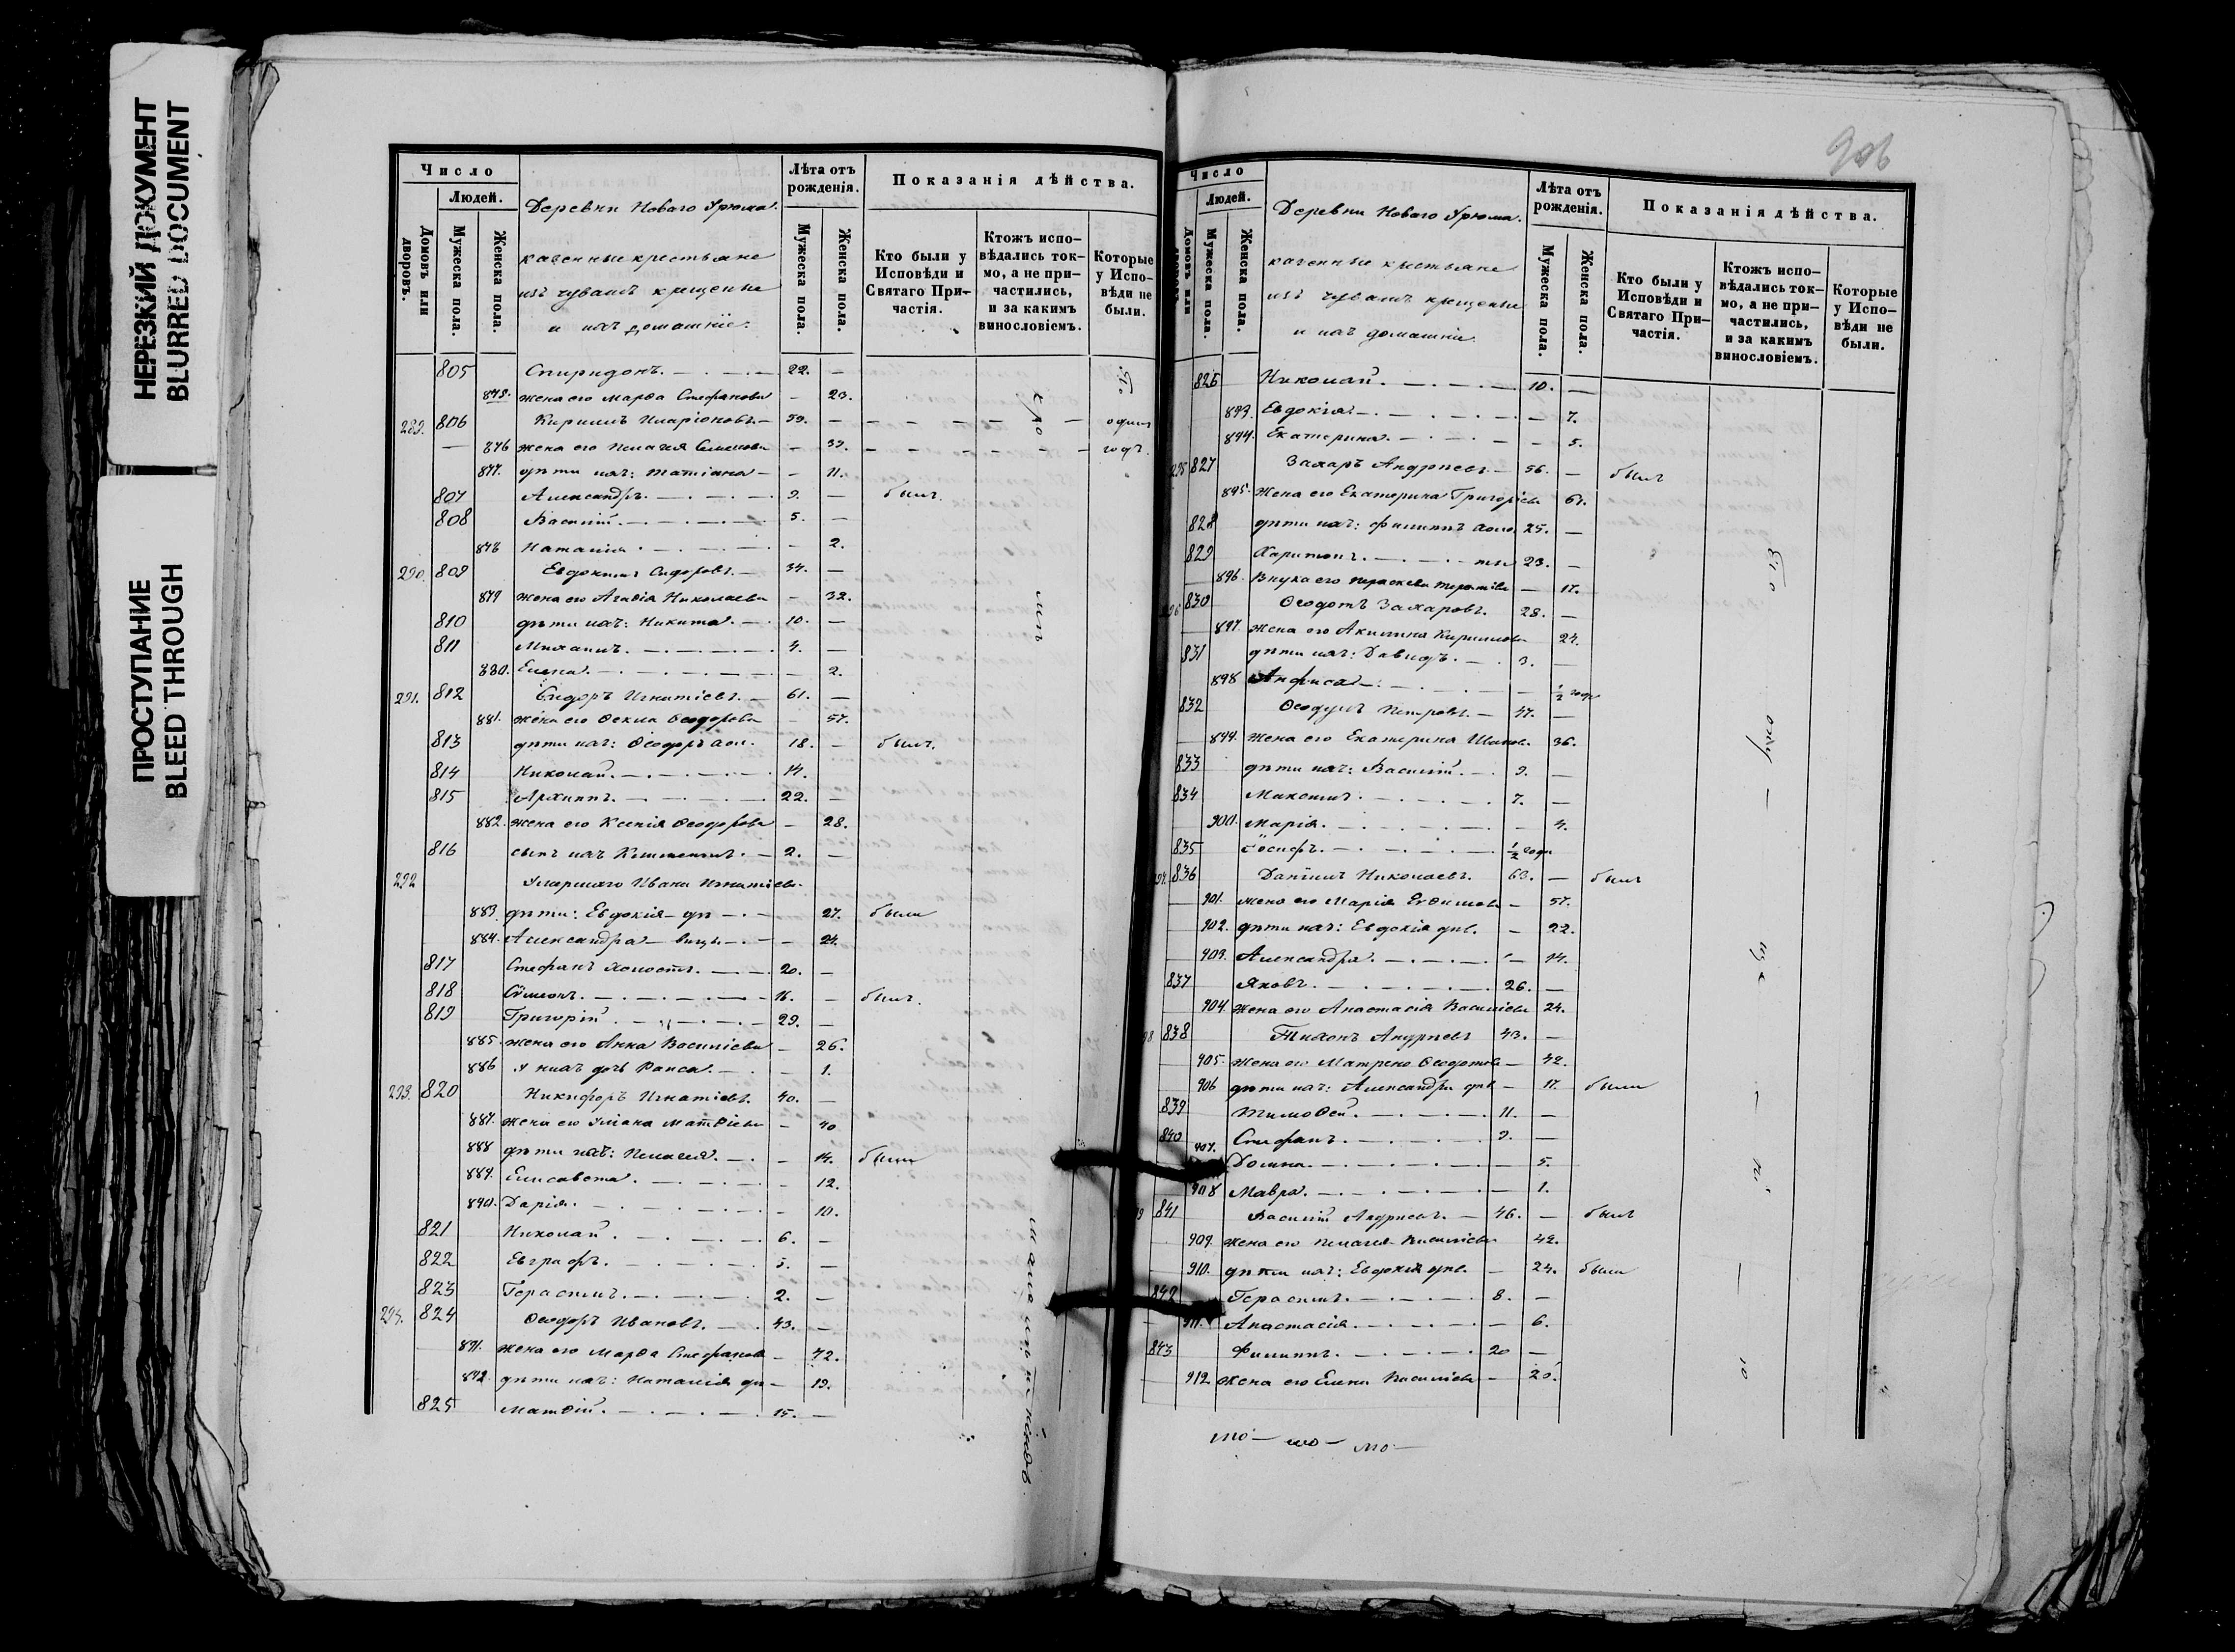 НЕРЕЗКИЙ ДОКУМЕНТ
BLURRED DOCUMENT
ПРОСТУПАНИЕ
BLEED THROUGH
Число
Людей.
Домовъ или дворовъ.
Мужеска пола.
Женска пола.
Деревни Новаго Урюма.
казенные крестьяне
изъ чувашъ крещеные
и ихъ домашніе.
Лѣта отъ рожденія.
Мужеска пола.
Женска пола.
Показанія дѣйства.
Кто были у Исповѣди и Святаго Причастія.
Ктожъ исповѣдались токмо, а не причастились, и за какимъ винословіемъ.
Которые у Исповѣди не были.
805 Спиридонъ. 22. —
875. жена его Марѳа Стефанова — 23.
289. 806 Кирилъ Иларіоновъ — 39. — один
876 жена его Пелагея Семенова — 39. годъ.
877. дѣти ихъ: Татіана — — 11.
807 Александръ. 9. — былъ.
808 Василій. 5. —
878 Наталія. — 2.
290. 809 Евдокимъ Сидоровъ. — 34. —
879 жена его Агаѳія Николаева — 32.
810 дѣти ихъ: Никита. 10. —
811 Михаилъ. 4. —
880. Елена. — 2.
291. 812 Сидоръ Игнатіевъ. — 61. —
881. жена его Ѳекла Ѳеодорова — 57.
813 дѣти ихъ: Ѳеодоръ хол. 18. — былъ.
814 Николай. 14.
815 Архипъ. 22. —
882. жена его Ксенія Ѳеодорова — 28.
816 сынъ ихъ Климентъ. — 2. —
292 Умершаго Ивана Игнатіева
883. дѣти: Евдокія — дѣ — 27. были
884. Александра — — 24.
817 Стефанъ холостъ. 20. —
818 Сѵмеонъ. 16. — былъ.
819 Григорій. 29. —
885. жена его Анна Васильева — 26.
886 у нихъ дочь Раиса. — 1.
293. 820 Никифоръ Игнатіевъ. 40. —
887. жена его Уліана Матѳіева — 40
888 дѣти ихъ: Пелагея. — 14. были
889. Елисавета. — 12.
890. Дарія. — 10.
821 Николай. 6. —
822 Евграфъ. 5. —
823 Герасимъ. 2. —
294. 824 Ѳеодоръ Ивановъ. 43. —
891. жена его Марѳа Стефанова — 42.
892. дѣти ихъ: Наталія дѣ — 19.
825 Матѳій. 15. —
906
Число
Людей.
Домовъ или
Мужеска пола
Женска пола.
Деревни Новаго Урюма.
казенные крестьяне
изъ чувашъ крещеные
и ихъ домашніе.
Лѣта отъ рожденія.
Мужеска пола.
Женска пола.
Показанія дѣйства.
Кто были у Исповѣди и Святаго Причастія.
Ктожъ исповѣдались токмо, а не причастились, и за какимъ винословіемъ.
Которые у Исповѣди не были.
826 Николай. 10. —
893. Евдокія. — 7.
894. Екатерина. — 5.
295 827 Захаръ Андреевъ — 56. — былъ
895. Жена его Екатерина Григорьева 61.
828 дѣти ихъ: Филиппъ холо 25. —
829 Харитонъ. 23. —
896. Внука его Параскева — 17.
830 Ѳеодотъ Захаровъ. 28. —
897. жена его Акилина Кирилова 24.
831 дѣти ихъ: Давидъ. 3. —
898 Анфиса — ½ года
832 Ѳеодулъ Петровъ. — 37. —
899. Жена его Екатерина 36.
833 дѣти ихъ: Василій. 9. —
834 Максимъ. 7. —
900. Марія. — 4.
835 Іосифъ. ½ года
297. 836 Даніилъ Николаевъ. 63. — былъ
901. жена его Марія Евѳимова — 57.
902. дѣти ихъ: Евдокія дѣв. — 22.
903. Александра. — 14.
837 Яковъ. 26. —
904. Жена его Анастасія Васильева 24.
838 Тихонъ Андреевъ 43. —
905. Жена его Матрена Ѳеодотова — 42.
906 дѣти ихъ: Александра дѣв. — 17. были
839 Тимоѳей. 11. —
840 Стефанъ. 9. —
907. Домна. — 5.
908 Мавра. — 1.
841 Василій Андреевъ. — 46. — былъ
909. жена его Пелагея Васильева 42.
910. дѣти ихъ: Евдокія дѣв. — 24. были
842 Герасимъ. 8. —
911. Анастасія. — 6.
843 Филиппъ. 20 —
912 Жена его Елена Васильева — 20.